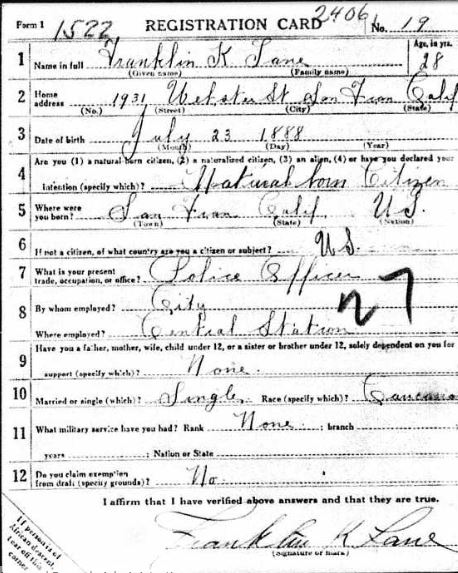 Form 1 1522 REGISTRATION CARD 2406 No. 19
1 Name in full Franklin K Lane Age, in yrs. 28
(Given name) (Family name)
2 Home address 1931 Webster St San Fran Calif
(No.) (Street) (City) (State)
3 Date of birth July 23 1888
(Month) (Day) (Year)
Are you (1) a natural-born citizen, (2) a naturalized citizen, (3) an alien, (4) or have you declared your
4 intention (specify which)? Natural born Citizen
5 Where were you born? San Fran Calif U.S.
(Town) (State) (Nation)
6 If not a citizen, of what country are you a citizen or subject? U.S.
7 What is your present trade, occupation, or office? Police Officer
27
8 By whom employed? City
Where employed? Central Station
9 Have you a father, mother, wife, child under 12, or a sister or brother under 12, solely dependent on you for
support (specify which)? None.
10 Married or single (which)? Single Race (specify which)? Caucasio
11 What military service have you had? Rank None ; branch
years ; Nation or State
12 Do you claim exemption from draft (specify grounds)? No.
I affirm that I have verified above answers and that they are true.
Franklin K Lane
(Signature or mark)
If person is of African descent tear off this corner